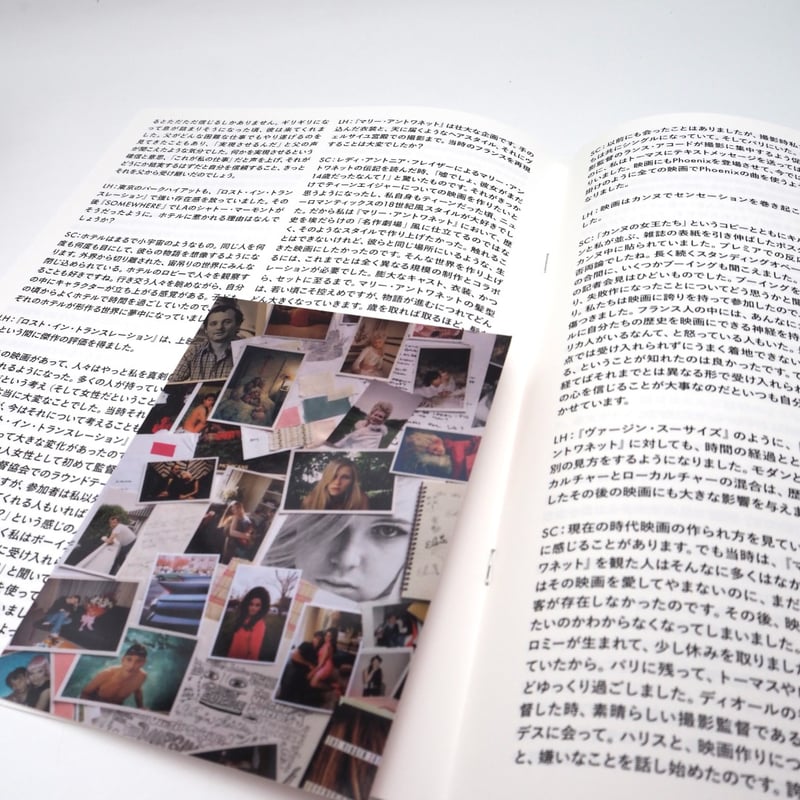 るとただただ信じるしかありません。ギリギリにな
って息が詰まりそうになった頃、彼は来てくれま
した。父がどんな困難な仕事でもやり遂げるのを
見てきたこともあり、「実現させるんだ」と父の声
が聞こえたような気分でした。何かを実現させるという
確信と意思、「これが私の仕事」だと声を上げ、それが
どうにか結実するはずだと自分を信頼すること、きっと
それを父から受け継いだのでしょう。
LH：東京のパークハイアットも、『ロスト・イン・トラン
スレーション』で誰い存在感を放っていました。その
後『SOMEWHERE』でLAのシャトー・マーモントが
そうだったように。ホテルに惹かれる理由はなんで
しょうか？
SC：ホテルはまるで小宇宙のようなもの。同じ人を何
度も何度も目にして、彼らの物語を想像するようにな
ります。外界から切り離された、宙吊りの世界にみんな
閉じ込められている。ホテルのロビーで人々を観察す
ることも好きですね。行き交う人々を眺めながら、自分
の中にキャラクターが立ち上がる感覚がある。
の頃からよくホテルで時間を過ごしていたので、
ぞれのホテルが形作る世界に夢中になっていまし
LH：『ロスト・イン・トランスレーション』は、上映
という間に傑作の評価を得ました。
の映画があって、人々はやっと私を真剣
になった。多くの人が持ってい
という考え（そして女性だというこ
当に大変なことでした。当時それ
、今はそれについて考えることも
スト・イン・トランスレーション』
って大きな変化があったので
人女性として初めて監督
督協会でのラウンドテー
すが、参加者は私以外
くれる人もいれば
？」という感じの人
く私はボーイフ
に受け入れ
」と聞いて
を使って
いまし
よっ
LH：『マリー・アントワネット』は壮大な企画です。手の
込んだ衣装と、天に届くようなヘアスタイル、ヴェ
ルサイユ宮殿での撮影まで。当時のフランスを再現
することは大変でしたか？
SC：レディ・アントニア・フレイザーによるマリー・アン
トワネットの伝記を読んだ時、「嘘でしょ、彼女がまだ
14歳だったなんて！」と驚いたものです。それがきっか
けでティーンエイジャーについての映画を作りたいと
思うようになったし、私自身もティーンだった頃、ニュ
ーロマンティックスの18世紀風スタイルが大好きでし
た。だから私は『マリー・アントワネット』において、歴
史を埃だらけの「名作劇場」風に仕立てるのではな
く、そのようなスタイルで作り上げたかった。触れるこ
とはできないけれど、彼らと同じ場所にいるような、生
きた映画にしたかったのです。そんな世界を作り上げ
るには、これまでとは全く異なる規模の制作とコラボ
レーションが必要でした。膨大なキャスト、衣装、かつ
ら、セットに至るまで。マリー・アントワネットの髪型
は、若いころそ控えめですが、物語が進むにつれてどん
どん大きくなっていきます。歳を取れば取るほど、髪
SC：以前にも会ったことはありましたが、撮影時私
は共にシングルになっていて、そしてパリにいた。
監督のランス・アコードが撮影に集中するよう促
に、私はトーマスにテキストメッセージを送っては
いました。映画にもPhoenixを登場させて、今で
掛けたように全ての映画でPhoenixの曲を使うよ
なりました。
LH：映画はカンヌでセンセーションを巻き起こ
SC：「カンヌの女王たち」というコピーとともにキ
ンと私が並ぶ、雑誌の表紙を引き伸ばしたポス
カンヌ中に貼られていました。プレミアでの反
否両論でしたね。長く続くスタンディングオベー
の合間に、いくつかブーイングも聞こえました。
の記者会見はひどいものでした。フィーリング
り、失敗作になったことについてどう思うかと聞
す。私たちは映画に誇りを持って参加したので、
傷つきました。フランス人の中には、あんなに
ルに自分たちの歴史を映画にできる神経を持
リカ人がいるなんて、と怒っている人もいた。
点では受け入れられずにうまく着地できない
る、ということが知れたのは良かったです。で
経てばそれまでとは異なる形で受け入れられ
の心を信じることが大事なのだといつも自分
かせています。
LH：『ヴァージン・スーサイズ』のように、
ントワネット』に対しても、時間の経過とと
別の見方をするようになりました。モダンと
カルチャーとローカルチャーの混合は、歴
したその後の映画にも大きな影響を与えま
SC：現在の時代映画の作られ方を見てい
に感じることがあります。でも当時は、『マ
ワネット』を観た人はそんなに多くはなか
はその映画を愛してやまないのに、まだ
客が存在しなかったのです。その後、映
たいのかわからなくなってしまいました。
ロミーが生まれて、少し休みを取りました
ていたから。パリに残って、トーマスや
どゆっくり過ごしました。ディオールの
督した時、素晴らしい撮影監督である
デスに会って。ハリスと、映画作りにつ
と、嫌いなことを話し始めたのです。誇